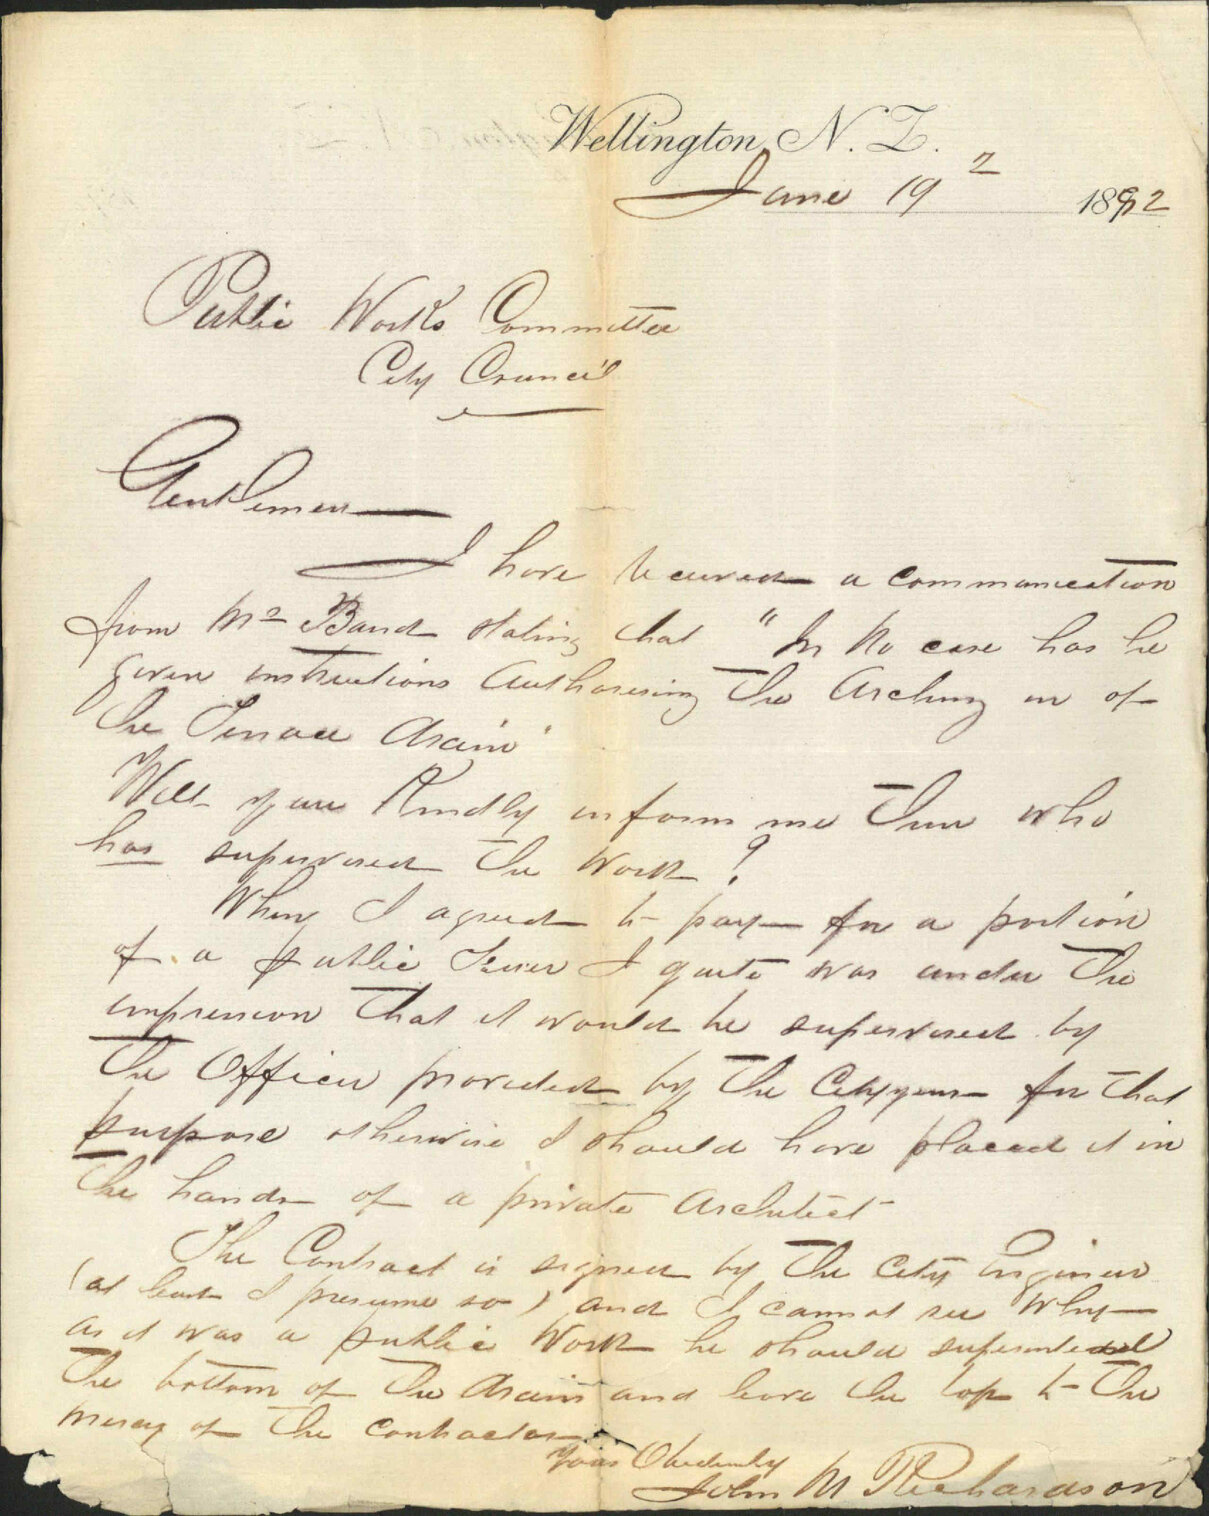 Wellington, N. Z.
June 19 1892
Public Works Committee
City Council
Gentlemen
I have received a communication
from Mr Baird stating that "In no case has he
given instructions authorising the Arching in of
the Terrace drain"
Will you Kindly inform me then who
has supervised the work?
When I agreed to pay for a portion
of a public Sewer I quite was under the
impression that it would be supervised by
the Officer provided by the Cityzens for that
purpose otherwise I should have placed it in
the hands of a private Architect
The Contract is signed by the City Engineer
(at least I presume so) and I cannot see why
as it was a public work he should superintend
the bottom of the drain and leave the top to the
mercy of the contractor
Yours Obediently
John M Richardson